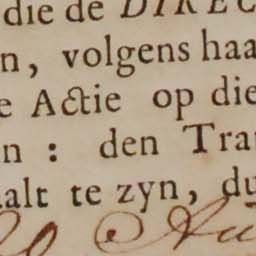 die de DIREC
n, volgens haa
e Actie op die
n : den Tra
alt te zyn, du